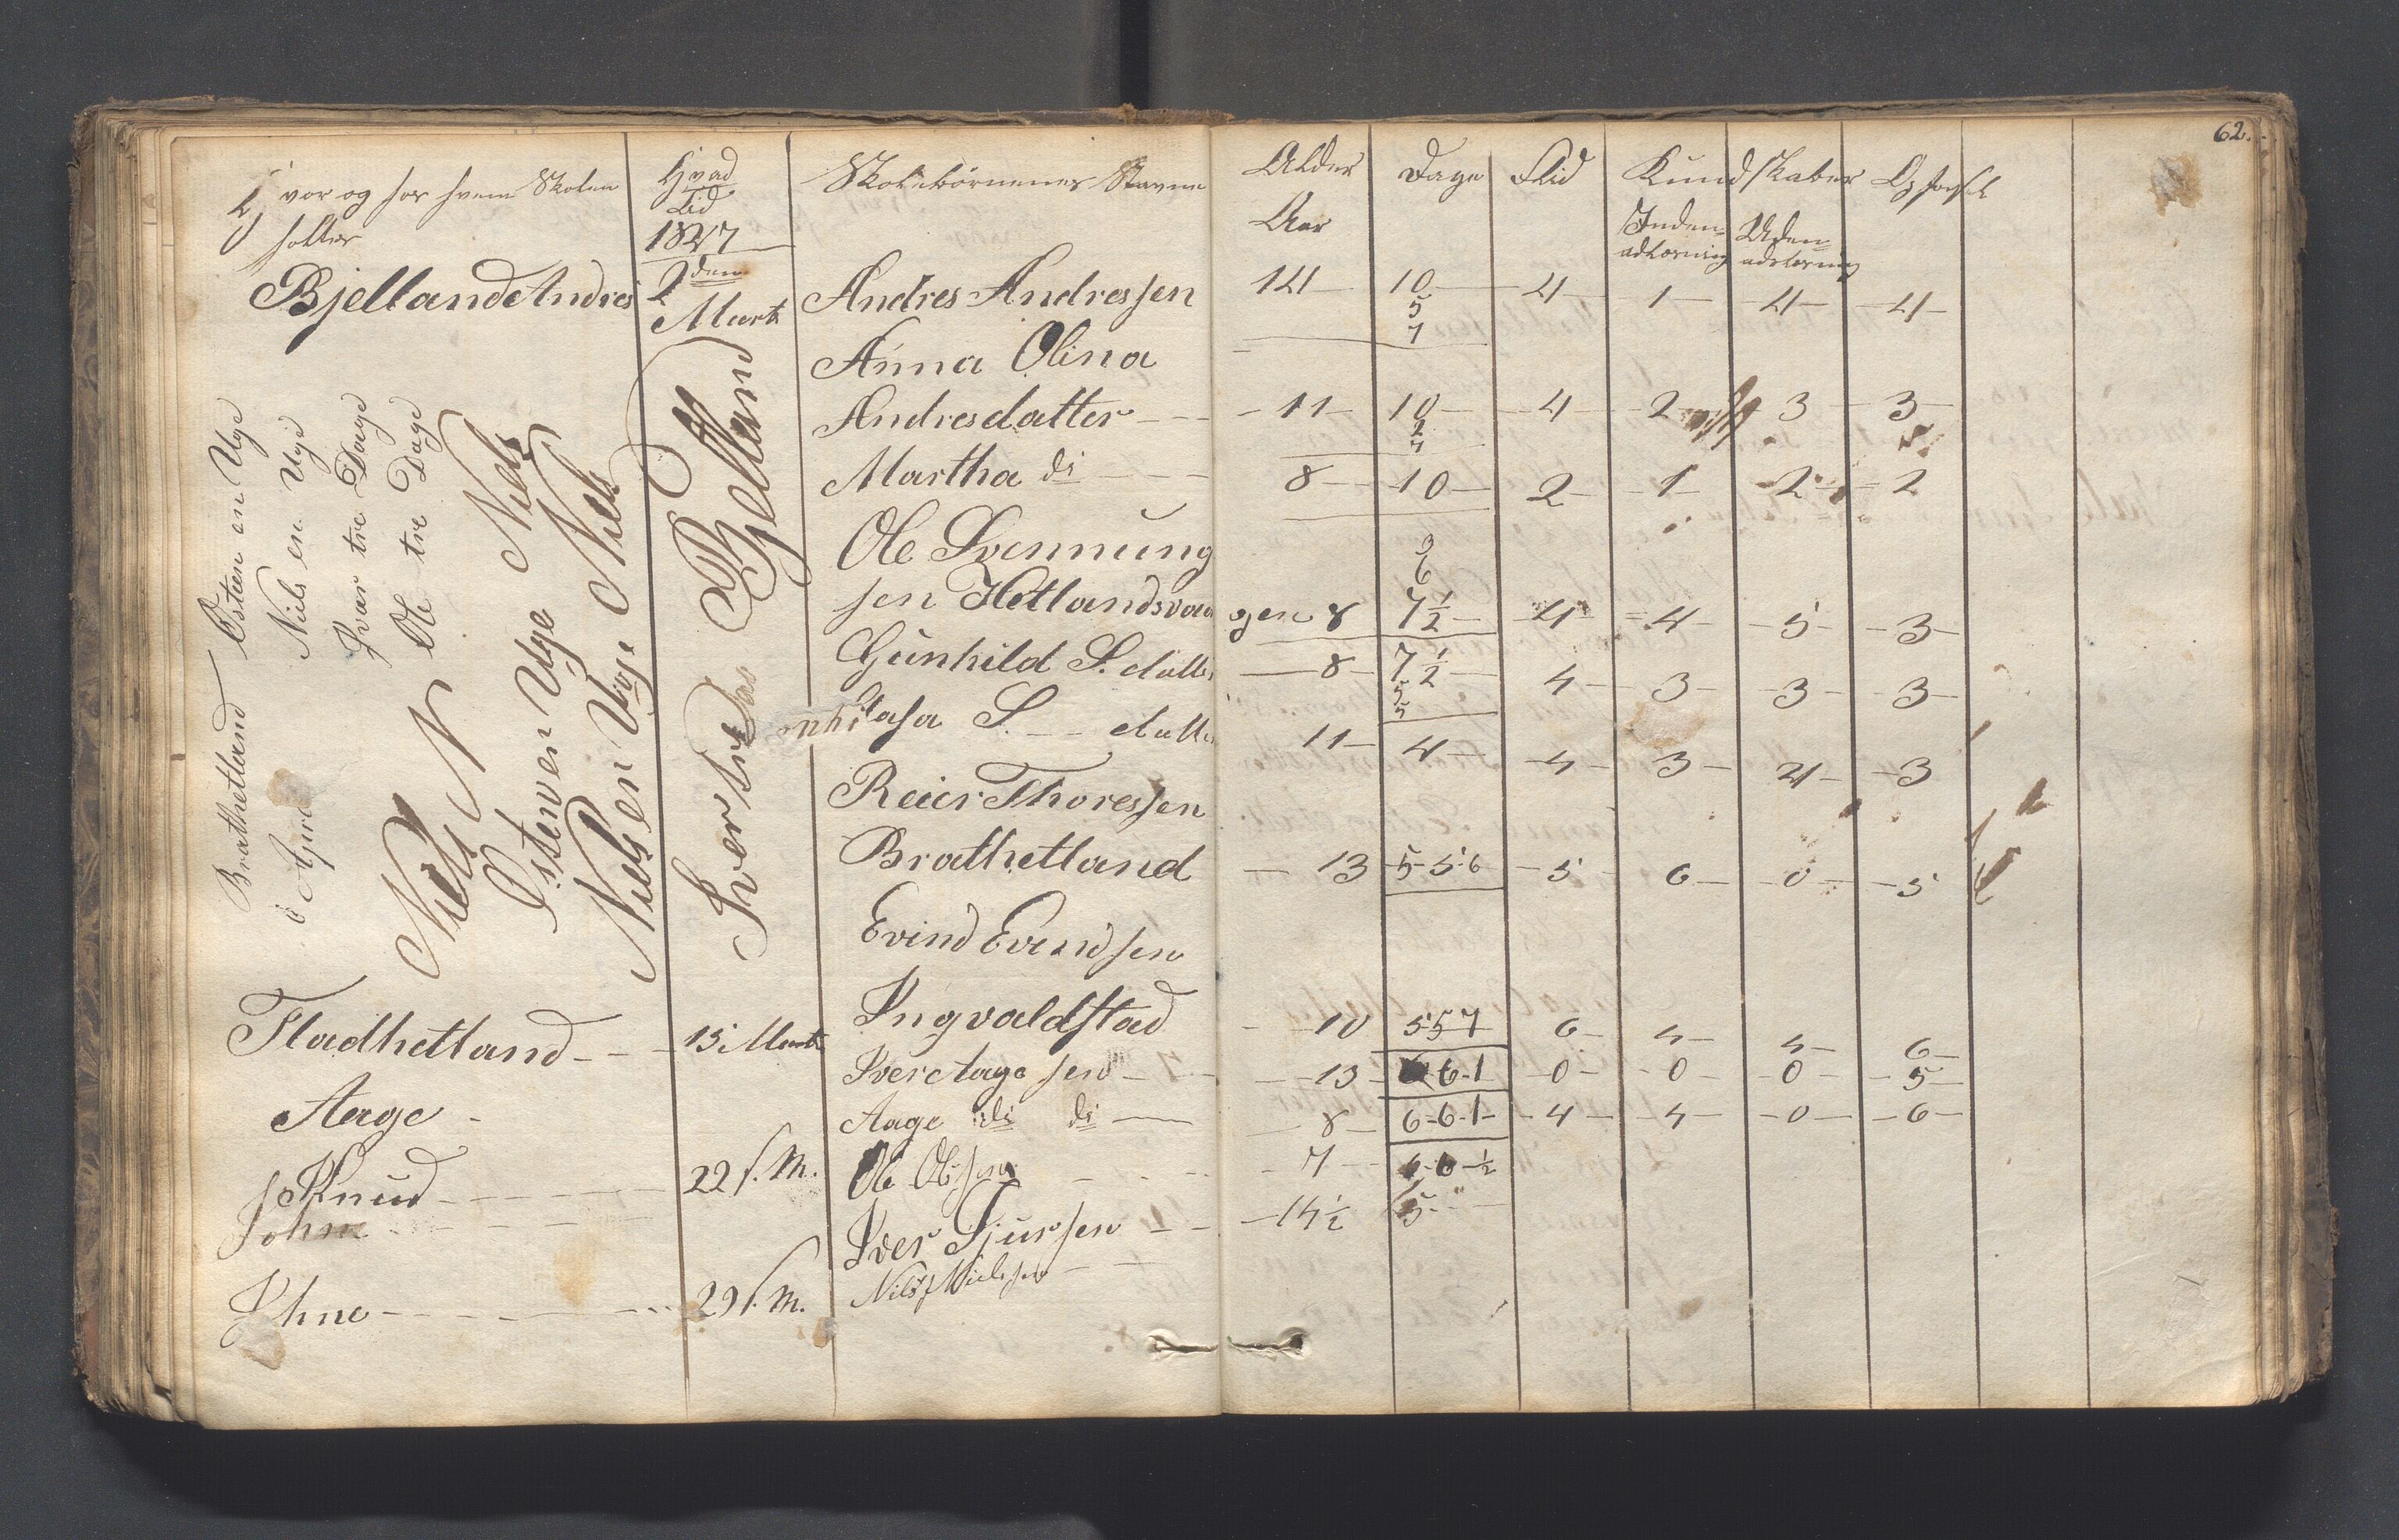 62.
Hvor og hos hvem Skolen
holtes
Hvad
Tid
1847
Skolebørnenes Navne
Alder
Aar
Dage
Flid
Kundskaber
Inden-
adlæsning
Uden-
adslæsning
Opførsel
Bjelland Andres
2den
Marts
Andres Andressen 14 10 4 1 4 4
5
7
Anna Olina
Andresdatter 11 10 4 2 3 3
2
Martha di 8 10 2 1 2 2
9
6
Ole Svennung
sen Hetlandsvaagen 8 7½ 4 4 5 3
Gunhild S. datter 8 7½ 4 3 3 3
5
5
Aasa S. datter 11 4 4 3 4 3
Reier Thoressen
Brathetland 13 5-5-6 5 6 0 5
Evind Evendsen
Ingvaldstad 10 5 5 7 6 4 4 6
Iver Aagesen 13 6-6-1 0 0 0 5
Aage di di 8 6-6-1 4 4 0 6
Ole Olsen 7 6-6-½
Iver Sjursen 14½ 5
Nils Nielsen
Brathetland Østen en Uge
6 April Niels en Uge
Ivar tre Dage
Ole tre Dage
Niels N Niels
Østen en Uge Niels
Niels en Uge
Iver Bjelland
Fladhetland 15 Marts
Aage
Knud 22 s. M.
John
Ihne 29 s. M.